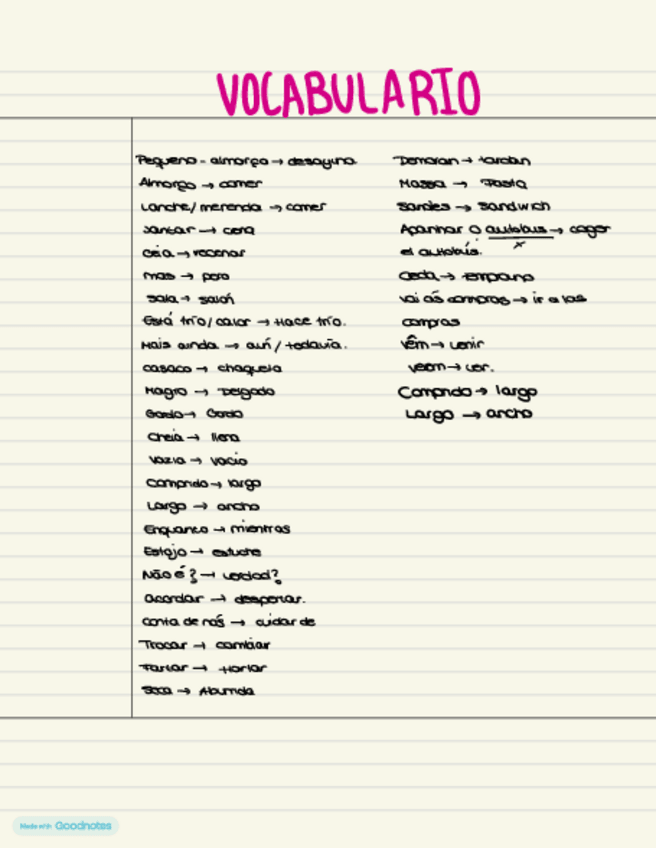 VOCABULARIO
Pequeno-almorço → desayuno
Almorço → comer
Lanche/merenda → comer
Jantar → cena
Ceia → recenar
mas → pero
Sala → salón
Está frío/calor → Hace frío.
Mais ainda → aún/todavía.
casaco → chaqueta
Magro → Delgado
Gordo → Gordo
Cheia → llena
Vazia → vacío
Comprido → largo
Largo → ancho
Enquanto → mientras
Estojo → estuche
Não é? → verdad?
acordar → despertar.
conta de nós → cuidar de
Trocar → cambiar
Fartar → Hartar
Seca → Aburrida
Demoran → tardan
Massa → Pasta
Sandes → sandwich
Apanhar o autobus → coger
el autobús.
Ceda →
vai ás compras → ir a las
compras
Vêm → venir
veem → ver.
Comprido → largo
Largo → ancho
Made with Goodnotes